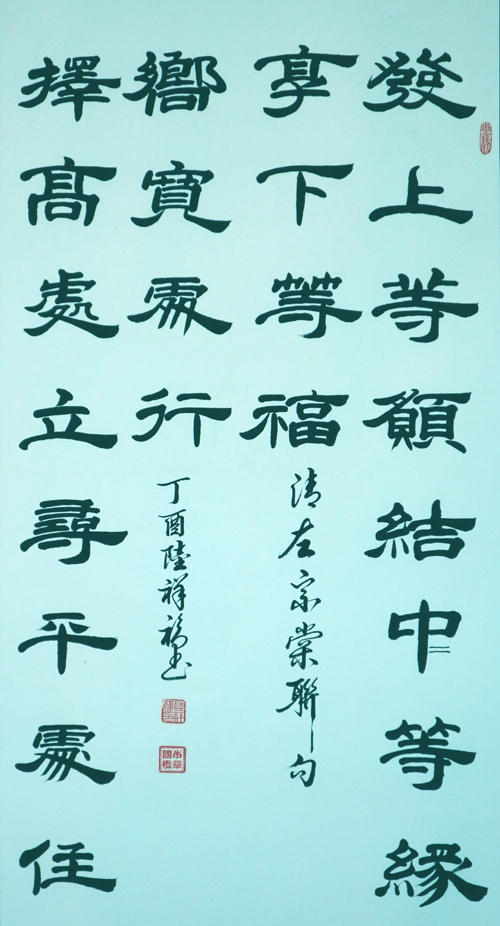 發上等願結中等緣
享下等福
清左宗棠聯句
擇高處立尋平處住
嚮寬處行
丁酉陸祥福書